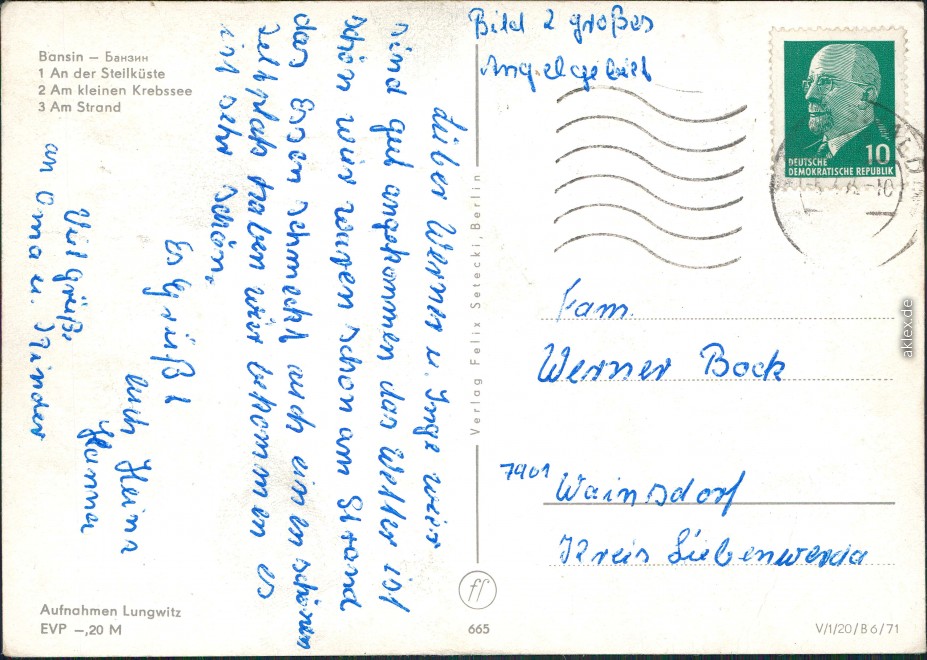 Bansin — Банзин
1 An der Steilküste
2 Am kleinen Krebssee
3 Am Strand
Bild 2 großes
Angelgebiet
Lieber Werner u. Inge wir
sind gut angekommen das Wetter ist
schön wir waren schon am Strand
das Essen schmeckt auch einen schönen
Zeltplatz haben wir bekommen es
ist sehr schön.
Es Grüßt
euch Heinz
Hanna
Viel Grüße
an Oma u. Kinder
DEUTSCHE
DEMOKRATISCHE REPUBLIK
10
Verlag Felix Setecki, Berlin
Fam.
Werner Bock
7901 Wainsdorf
Kreis Liebenwerda
Aufnahmen Lungwitz
EVP –,20 M
ff
665
V/1/20/B 6/71
aklex.de